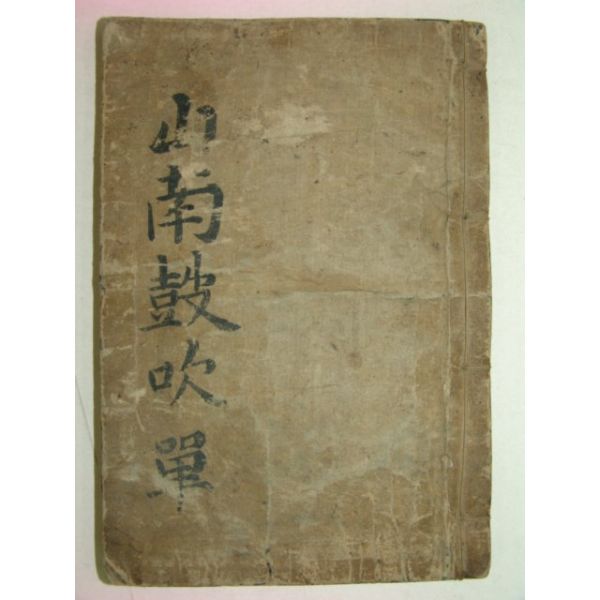 山南鼓吹 單